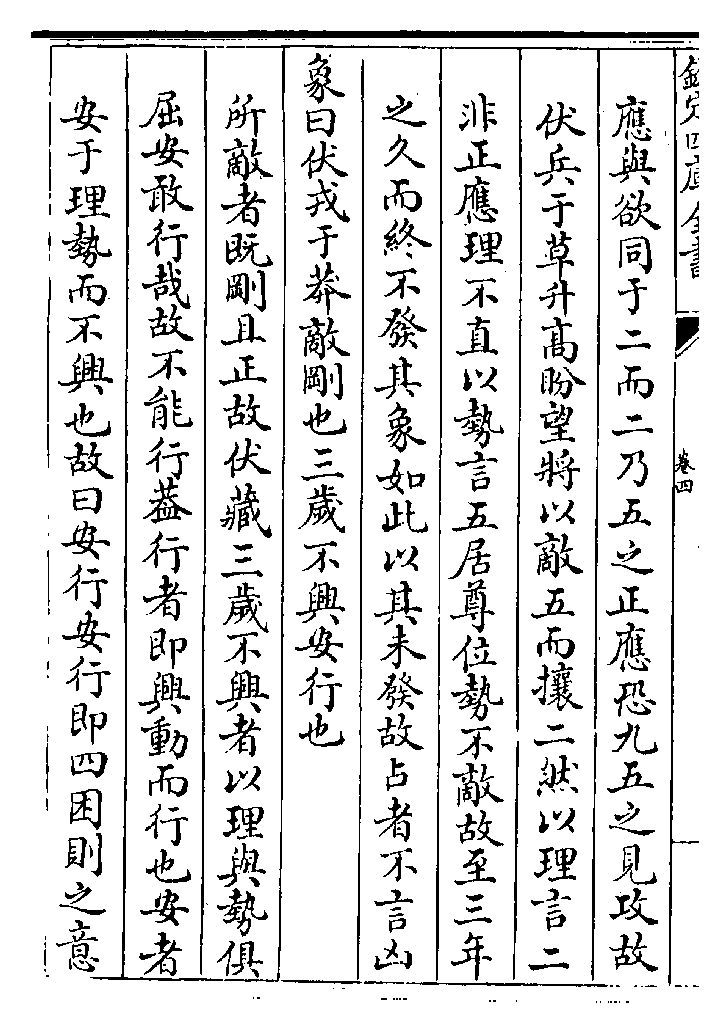 欽定四庫全書
卷四
應與欲同于二而二乃五之正應恐九五之見攻故
伏兵于草升高盼望將以敵五而攘二然以理言二
非正應理不直以勢言五居尊位勢不敵故至三年
之久而終不發其象如此以其未發故占者不言凶
象曰伏戎于莽敵剛也三歲不興安行也
所敵者既剛且正故伏藏三歲不興者以理與勢俱
屈安敢行哉故不能行葢行者即興動而行也安者
安于理勢而不興也故曰安行安行即四困則之意